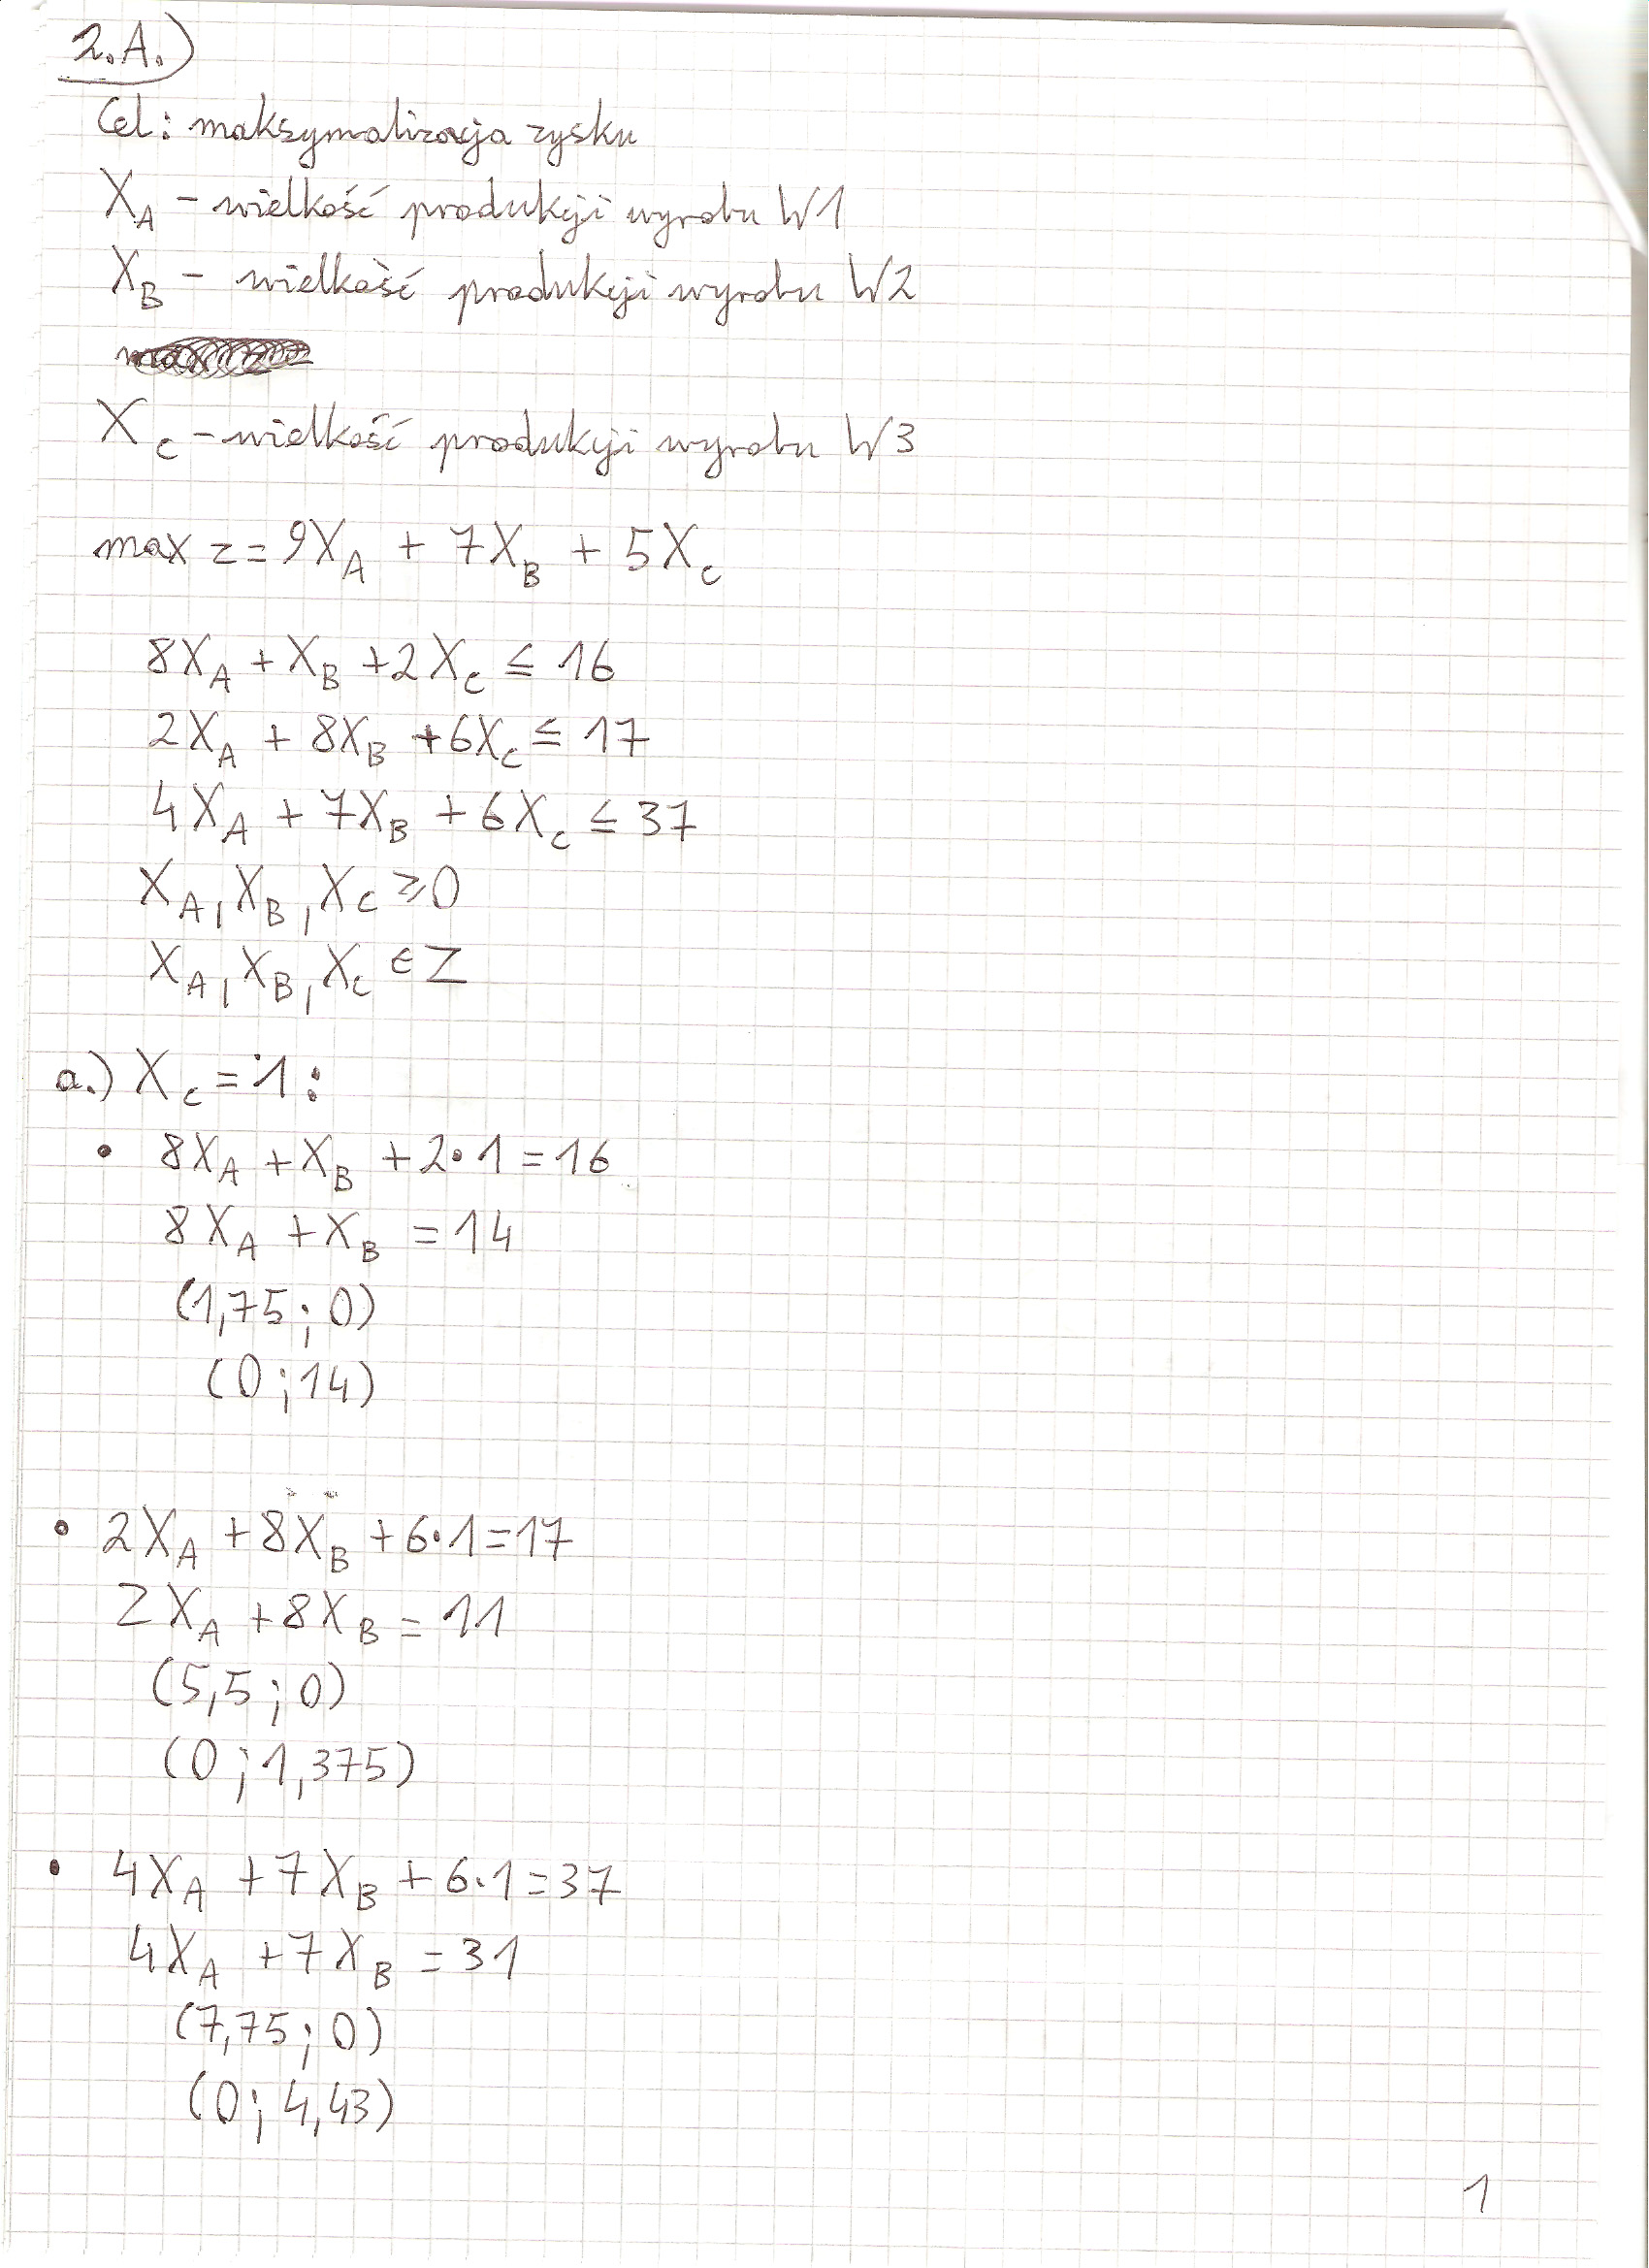 2.A.)
Cel: maksymalizacja zysku
X_A - wielkość produkcji wyrobu W1
X_B - wielkość produkcji wyrobu W2
X_C - wielkość produkcji wyrobu W3
max z = 9X_A + 7X_B + 5X_C
8X_A + X_B + 2X_C ≤ 16
2X_A + 8X_B + 6X_C ≤ 17
4X_A + 7X_B + 6X_C ≤ 37
X_A, X_B, X_C ≥ 0
X_A, X_B, X_C ∈ Z
a.) X_C = 1:
• 8X_A + X_B + 2·1 = 16
8X_A + X_B = 14
(1,75; 0)
(0; 14)
• 2X_A + 8X_B + 6·1 = 17
2X_A + 8X_B = 11
(5,5; 0)
(0; 1,375)
• 4X_A + 7X_B + 6·1 = 37
4X_A + 7X_B = 31
(7,75; 0)
(0; 4,43)
1